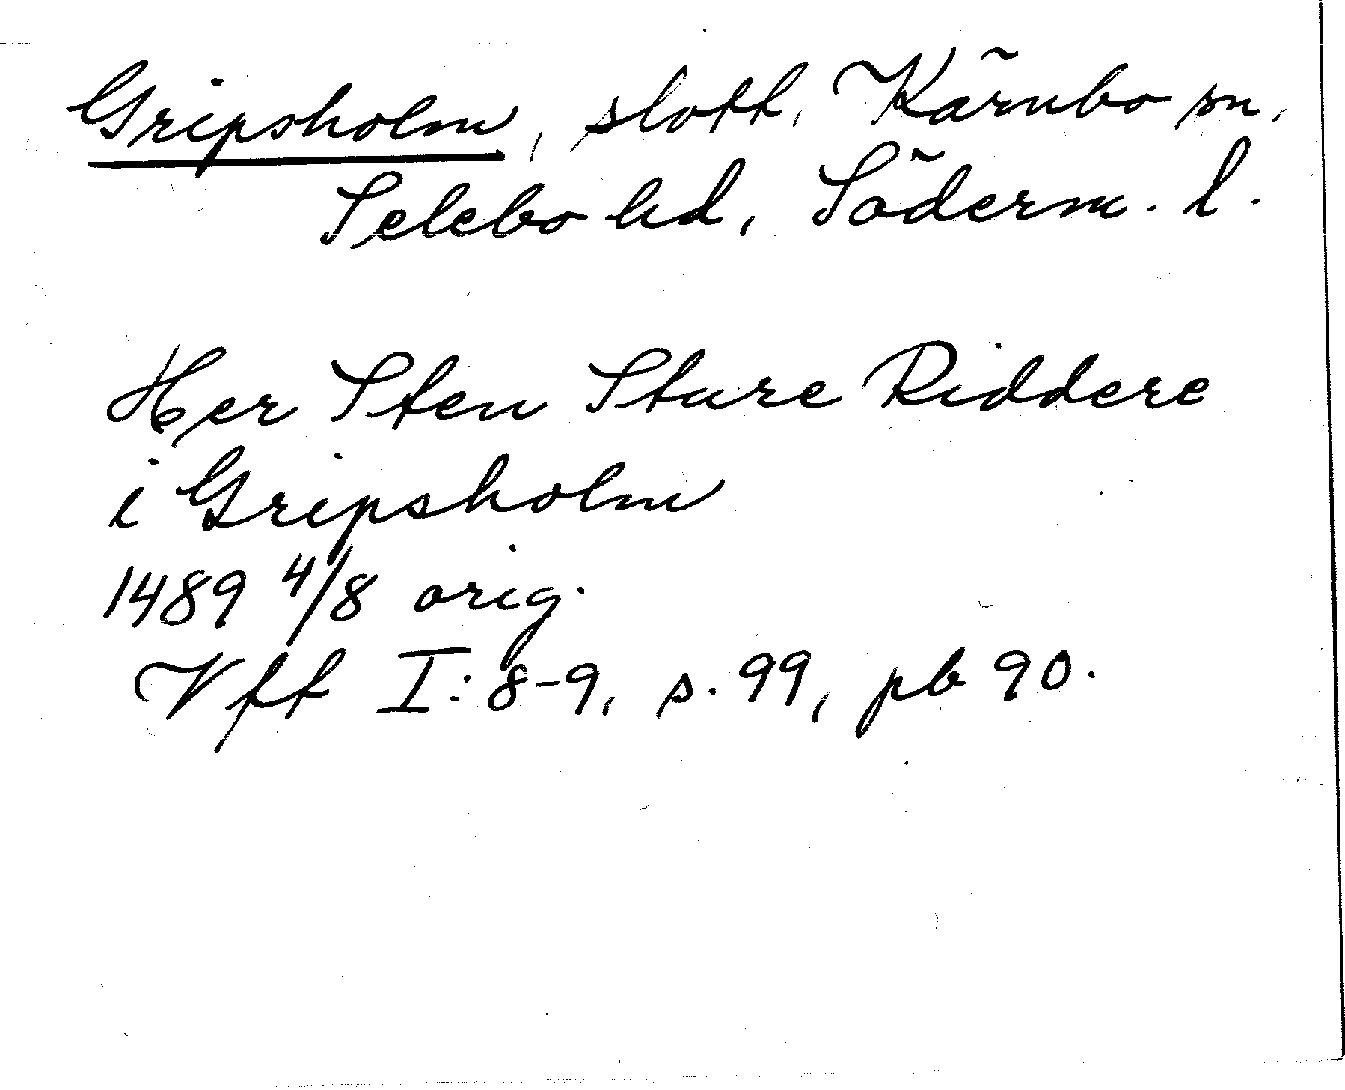 Gripsholm, slott, Kärnbo sn,
Selebo hd, Söderm. l.
Her Sten Sture Riddere
i Gripsholm
1489 4/8 orig.
Vff I: 8-9, s. 99, pb 90.